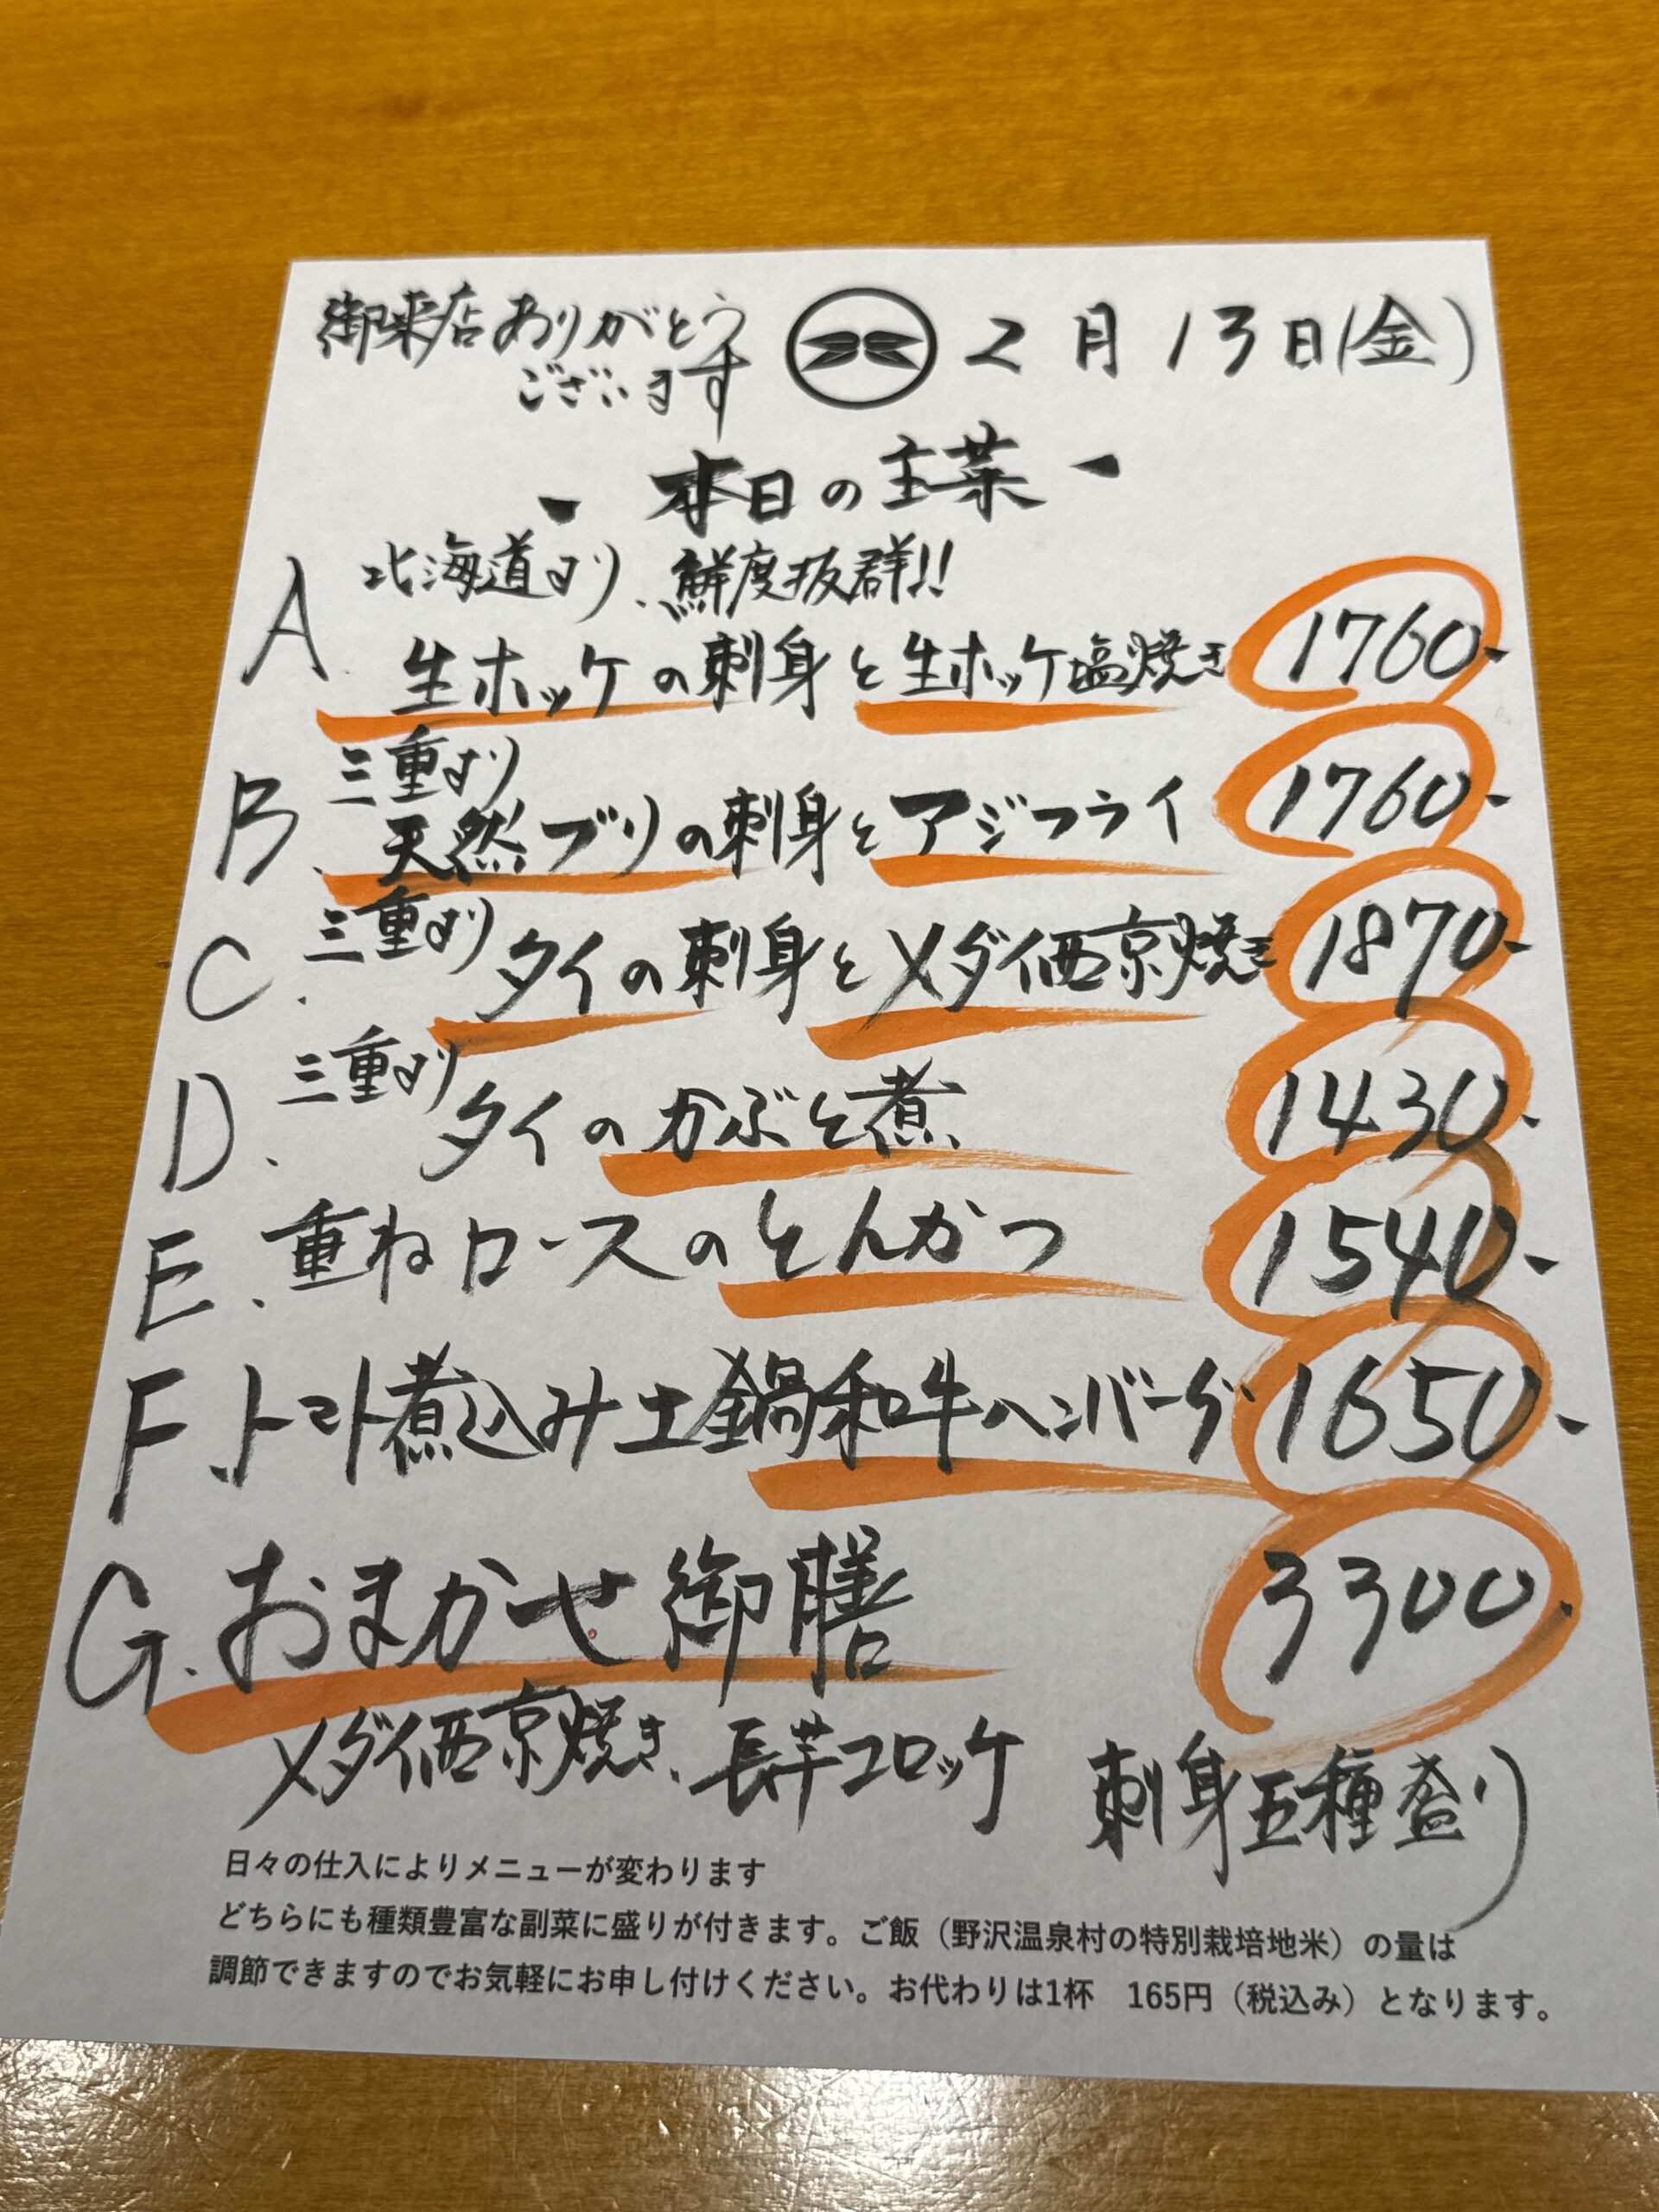 御来店ありがとう
ございます
2月13日(金)
- 本日の主菜 -
A. 北海道より、鮮度抜群!!
生ホッケの刺身と生ホッケ塩焼き 1760-
B. 三重より
天然ブリの刺身とアジフライ 1760-
C. 三重より タイの刺身とメダイ西京焼き 1870-
D. 三重より タイのかぶと煮 1430-
E. 重ねロースのとんかつ 1540-
F. トマト煮込み土鍋和牛ハンバーグ 1650-
G. おまかせ御膳 3300-
メダイ西京焼き、長芋コロッケ 刺身五種盛り
日々の仕入によりメニューが変わります
どちらにも種類豊富な副菜に盛りが付きます。ご飯（野沢温泉村の特別栽培地米）の量は
調節できますのでお気軽にお申し付けください。お代わりは1杯　165円（税込み）となります。